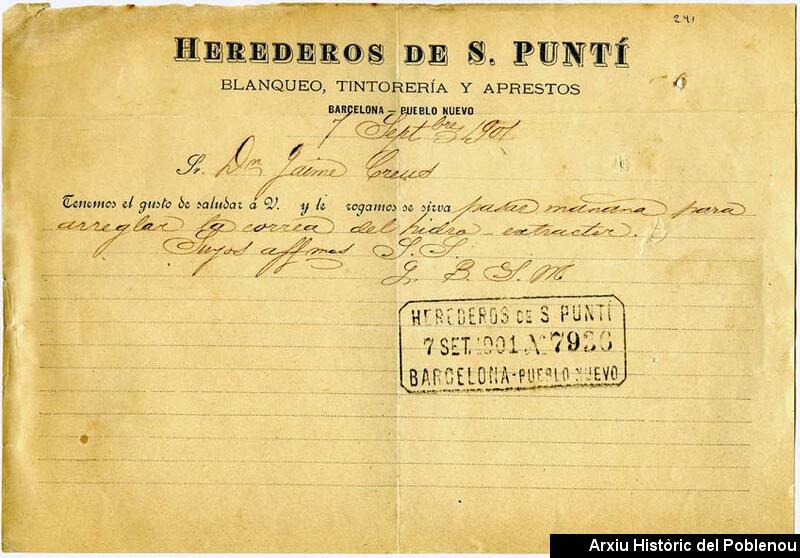 241
HEREDEROS DE S. PUNTÍ
BLANQUEO, TINTORERÍA Y APRESTOS
BARCELONA – PUEBLO NUEVO
7 Septbre 1901
Sr. Dn Jaime Creus
Tenemos el gusto de saludar á V. y le rogamos se sirva pasar mañana para
arreglar la correa del hidro extracter.
Suyos affmos S. S.
Q. B. S. M
HEREDEROS DE S PUNTÍ
7 SET. 1901 Nº 7936
BARCELONA-PUEBLO NUEVO
Arxiu Històric del Poblenou